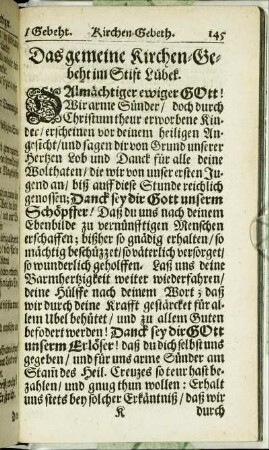 / Gebeht. Kirchen-Gebeth. 145
Das gemeine Kirchen-Ge-
beht im Stift Lübek.
Allmächtiger ewiger GOtt!
Wir arme Sünder/ doch durch
Christum theur erworbene Kin-
der/ erscheinen vor deinem heiligen An-
gesicht/ und sagen dir von Grund unserer
Hertzen Lob und Danck für alle deine
Wolthaten/ die wir von unser ersten Ju-
gend an/ biß auff diese Stunde reichlich
genossen; Danck sey dir Gott unserm
Schöpffer! Daß du uns nach deinem
Ebenbilde zu vernünfftigen Menschen
erschaffen; bißher so gnädig erhalten/ so
mächtig beschüzzet/ so väterlich versorget/
so wunderlich geholffen. Laß uns deine
Barmhertzigkeit weiter wiederfahren/
deine Hülffe nach deinem Wort; daß
wir durch deine Krafft gestärcket für al-
lem Ubel behütet/ und zu allem Guten
befodert werden! Danck sey dir GOtt
unserm Erlöser! daß du dich selbst uns
gegeben/ und für uns arme Sünder am
Stam̃ des Heil. Creuzes so teur hast be-
zahlen/ und gnug thun wollen: Erhalt
uns stets bey solcher Erkäntniß/ daß wir
K durch